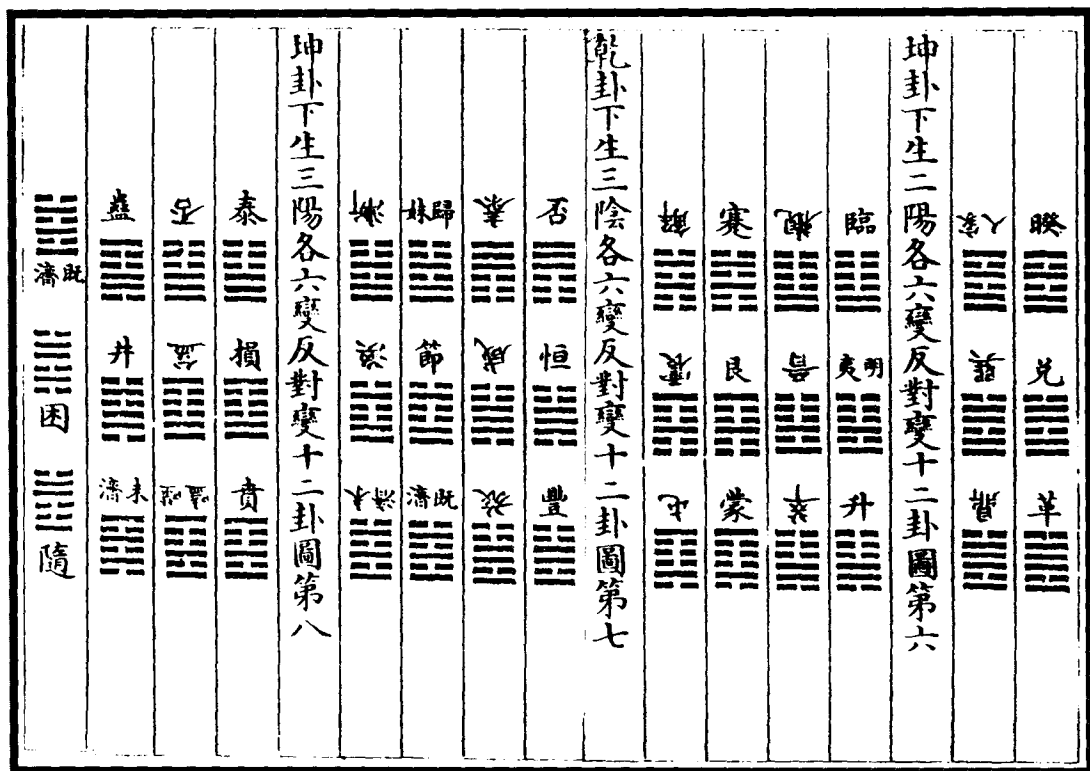 睽 兌 革
家人 巽 鼎
坤卦下生二陽各六變反對變十二卦圖第六
臨 明夷 升
觀 晉 萃
蹇 艮 蒙
解 震 屯
乾卦下生三陰各六變反對變十二卦圖第七
否 恒 豐
泰 咸 旅
歸妹 節 既濟
漸 渙 未濟
坤卦下生三陽各六變反對變十二卦圖第八
泰 損 賁
否 益 噬嗑
蠱 井 未濟
既濟 困 隨